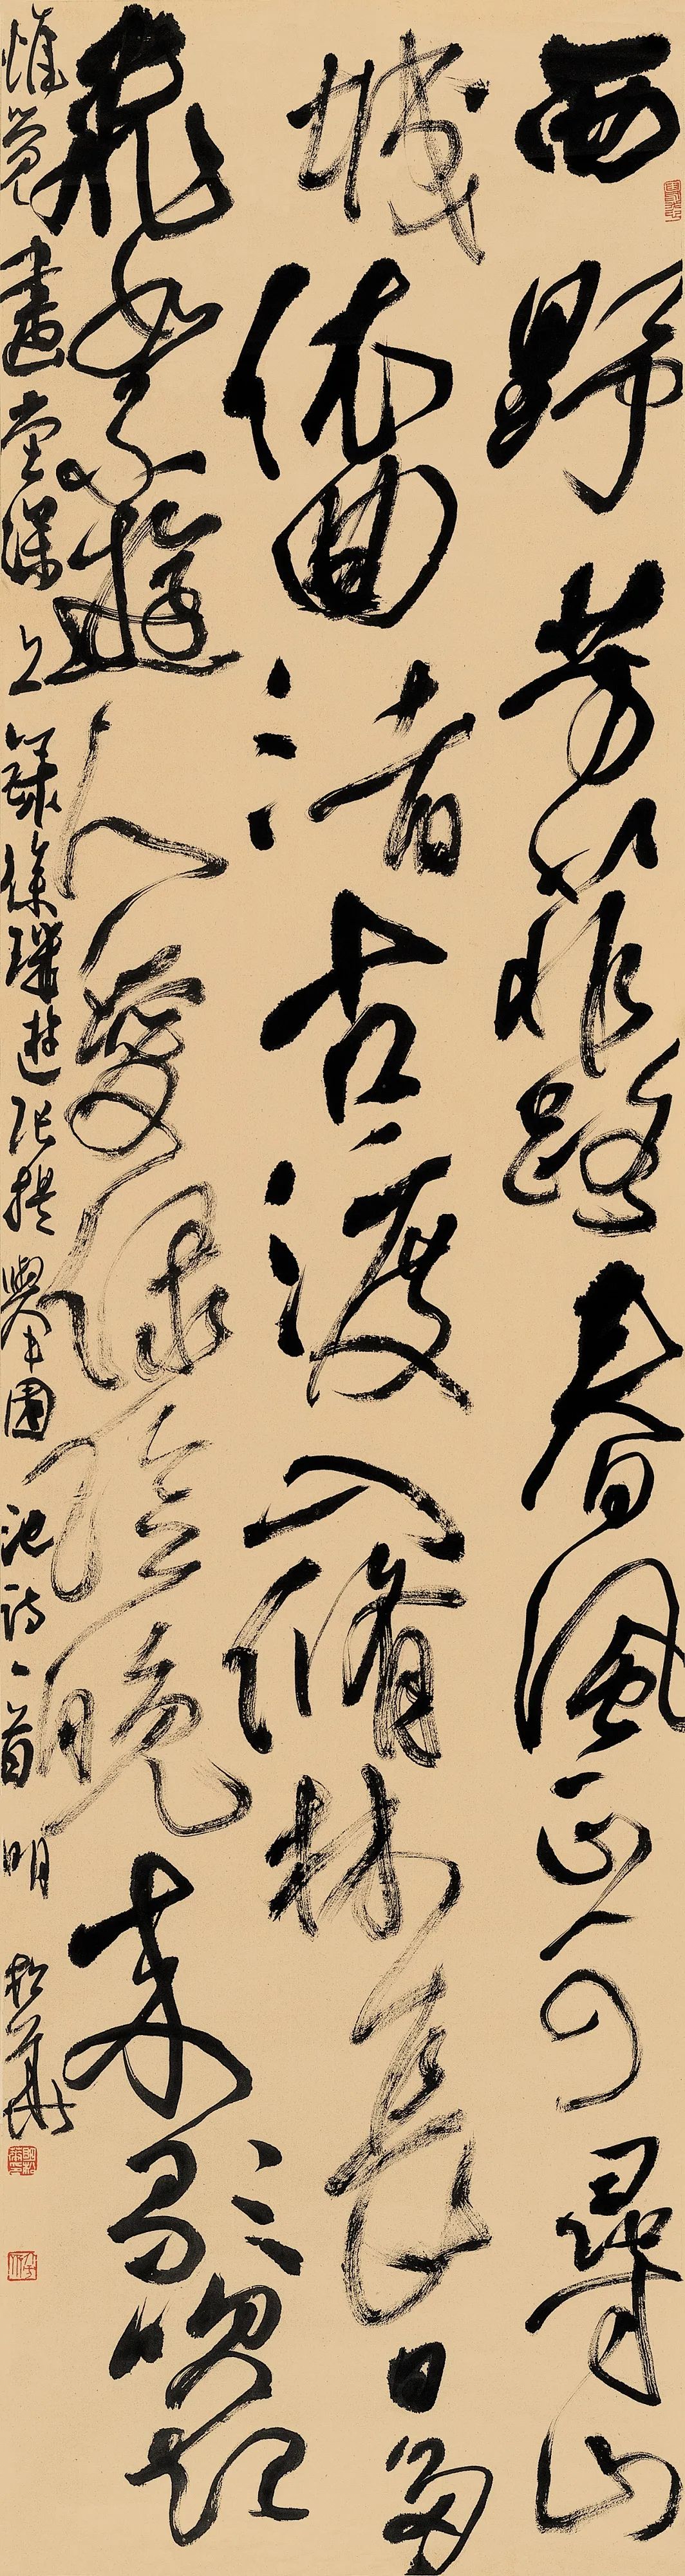 西野芳菲路春風正可尋山
城依曲渚古渡入脩林長日多
飛絮遊人愛緑陰晚來歌吹起
惟覺畫堂深 上錄徐璣遊張提舉園池詩一首 明 松華